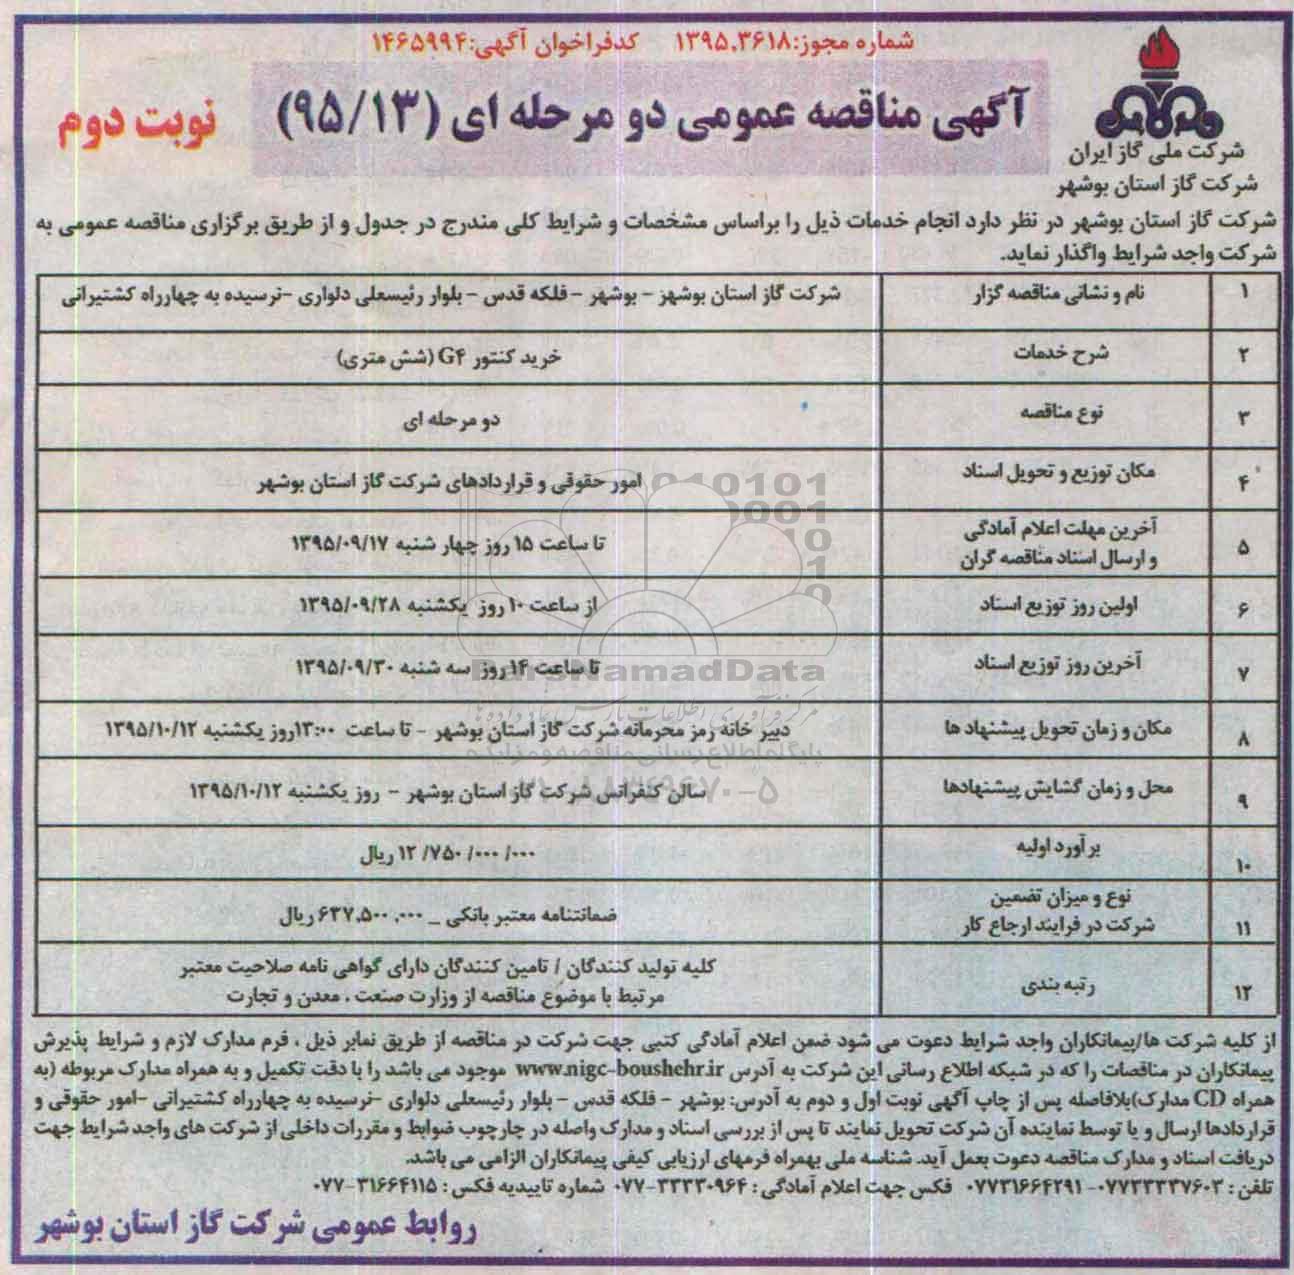 شماره مجوز:۱۳۹۵.۳۶۱۸ کدفراخوان آگهی:۱۴۶۵۹۹۴
آگهی مناقصه عمومی دو مرحله ای (۹۵/۱۳)
نوبت دوم
شرکت ملی گاز ایران
شرکت گاز استان بوشهر
شرکت گاز استان بوشهر در نظر دارد انجام خدمات ذیل را براساس مشخصات و شرایط کلی مندرج در جدول و از طریق برگزاری مناقصه عمومی به
شرکت واجد شرایط واگذار نماید.
۱ نام و نشانی مناقصه گزار شرکت گاز استان بوشهر – بوشهر – فلکه قدس – بلوار رئیسعلی دلواری –نرسیده به چهارراه کشتیرانی
۲ شرح خدمات خرید کنتور G۴ (شش متری)
۳ نوع مناقصه دو مرحله ای
۴ مکان توزیع و تحویل اسناد امور حقوقی و قراردادهای شرکت گاز استان بوشهر
۵ آخرین مهلت اعلام آمادگی
و ارسال اسناد مناقصه گران تا ساعت ۱۵ روز چهار شنبه ۱۳۹۵/۰۹/۱۷
۶ اولین روز توزیع اسناد از ساعت ۱۰ روز یکشنبه ۱۳۹۵/۰۹/۲۸
۷ آخرین روز توزیع اسناد تا ساعت ۱۴ روز سه شنبه ۱۳۹۵/۰۹/۳۰
۸ مکان و زمان تحویل پیشنهاد ها دبیر خانه رمز محرمانه شرکت گاز استان بوشهر – تا ساعت ۱۳:۰۰روز یکشنبه ۱۳۹۵/۱۰/۱۲
۹ محل و زمان گشایش پیشنهادها سالن کنفرانس شرکت گاز استان بوشهر – روز یکشنبه ۱۳۹۵/۱۰/۱۲
۱۰ برآورد اولیه ۱۲/۷۵۰/۰۰۰/۰۰۰ ریال
۱۱ نوع و میزان تضمین
شرکت در فرایند ارجاع کار ضمانتنامه معتبر بانکی _ ۶۳۷,۵۰۰,۰۰۰ ریال
۱۲ رتبه بندی کلیه تولید کنندگان / تامین کنندگان دارای گواهی نامه صلاحیت معتبر
مرتبط با موضوع مناقصه از وزارت صنعت ، معدن و تجارت
از کلیه شرکت ها/پیمانکاران واجد شرایط دعوت می شود ضمن اعلام آمادگی کتبی جهت شرکت در مناقصه از طریق نمابر ذیل ، فرم مدارک لازم و شرایط پذیرش
پیمانکاران در مناقصات را که در شبکه اطلاع رسانی این شرکت به آدرس www.nigc-boushehr.ir موجود می باشد را با دقت تکمیل و به همراه مدارک مربوطه (به
همراه CD مدارک)بلافاصله پس از چاپ آگهی نوبت اول و دوم به آدرس: بوشهر – فلکه قدس – بلوار رئیسعلی دلواری –نرسیده به چهارراه کشتیرانی –امور حقوقی و
قراردادها ارسال و یا توسط نماینده آن شرکت تحویل نمایند تا پس از بررسی اسناد و مدارک واصله در چارچوب ضوابط و مقررات داخلی از شرکت های واجد شرایط جهت
دریافت اسناد و مدارک مناقصه دعوت بعمل آید. شناسه ملی بهمراه فرمهای ارزیابی کیفی پیمانکاران الزامی می باشد.
تلفن : ۰۷۷۳۳۳۳۷۶۰۳- ۰۷۷۳۱۶۶۴۲۹۱ فکس جهت اعلام آمادگی : ۳۳۳۳۰۹۶۴-۰۷۷ شماره تاییدیه فکس : ۳۱۶۶۴۱۱۵-۰۷۷
روابط عمومی شرکت گاز استان بوشهر
ParsNamadData
مرکز فرآوری اطلاعات پارس نماد داده ها
پایگاه اطلاع رسانی مناقصه و مزایده